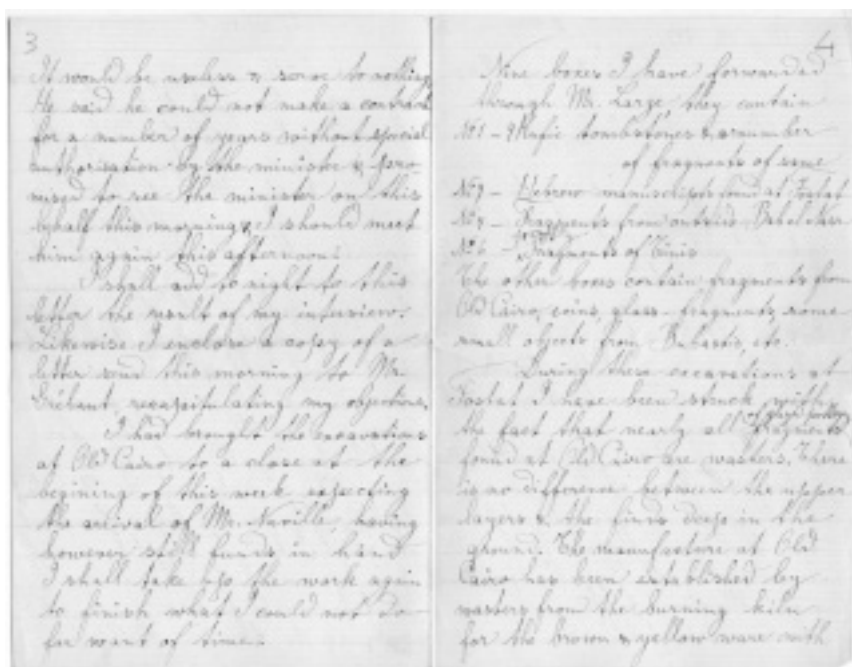 3
It would be useless & serve to nothing
He said he could not make a contract
for a number of years without special
authorisation by the minister & pro-
mised to see the minister on this
behalf this morning, I should meet
him again this afternoon.
I shall add to night to this
letter the result of my interview.
Likewise I enclose a copy of a
letter send this morning to Mr.
Grébaut, recapitulating my objections.
I had brought the excavations
at Old Cairo to a close at the
begining of this week expecting
the arrival of Mr. Naville, having
however still funds in hand
I shall take up the work again
to finish what I could not do
for want of time.
4
Nine boxes I have forwarded
through Mr. Large, they contain
No 1 - 9 Kufic tombstones & a number
of fragments of same
No - Hebrew manuscripts found at Fostat
No - Fragments from outside Bab el Nasr
No 6 - Fragments of Tinis
The other boxes contain fragments from
Old Cairo, coins, glass-fragments, some
small objects from Bubastis, etc.
During these excavations at
Fostat I have been struck with
the fact that nearly all of glazed pottery fragments
found at Old Cairo are wasters. There
is no difference between the upper
layers & the finds deep in the
ground. The manufacture at Old
Cairo has been established by
wasters from the burning kiln
for the brown & yellow ware with